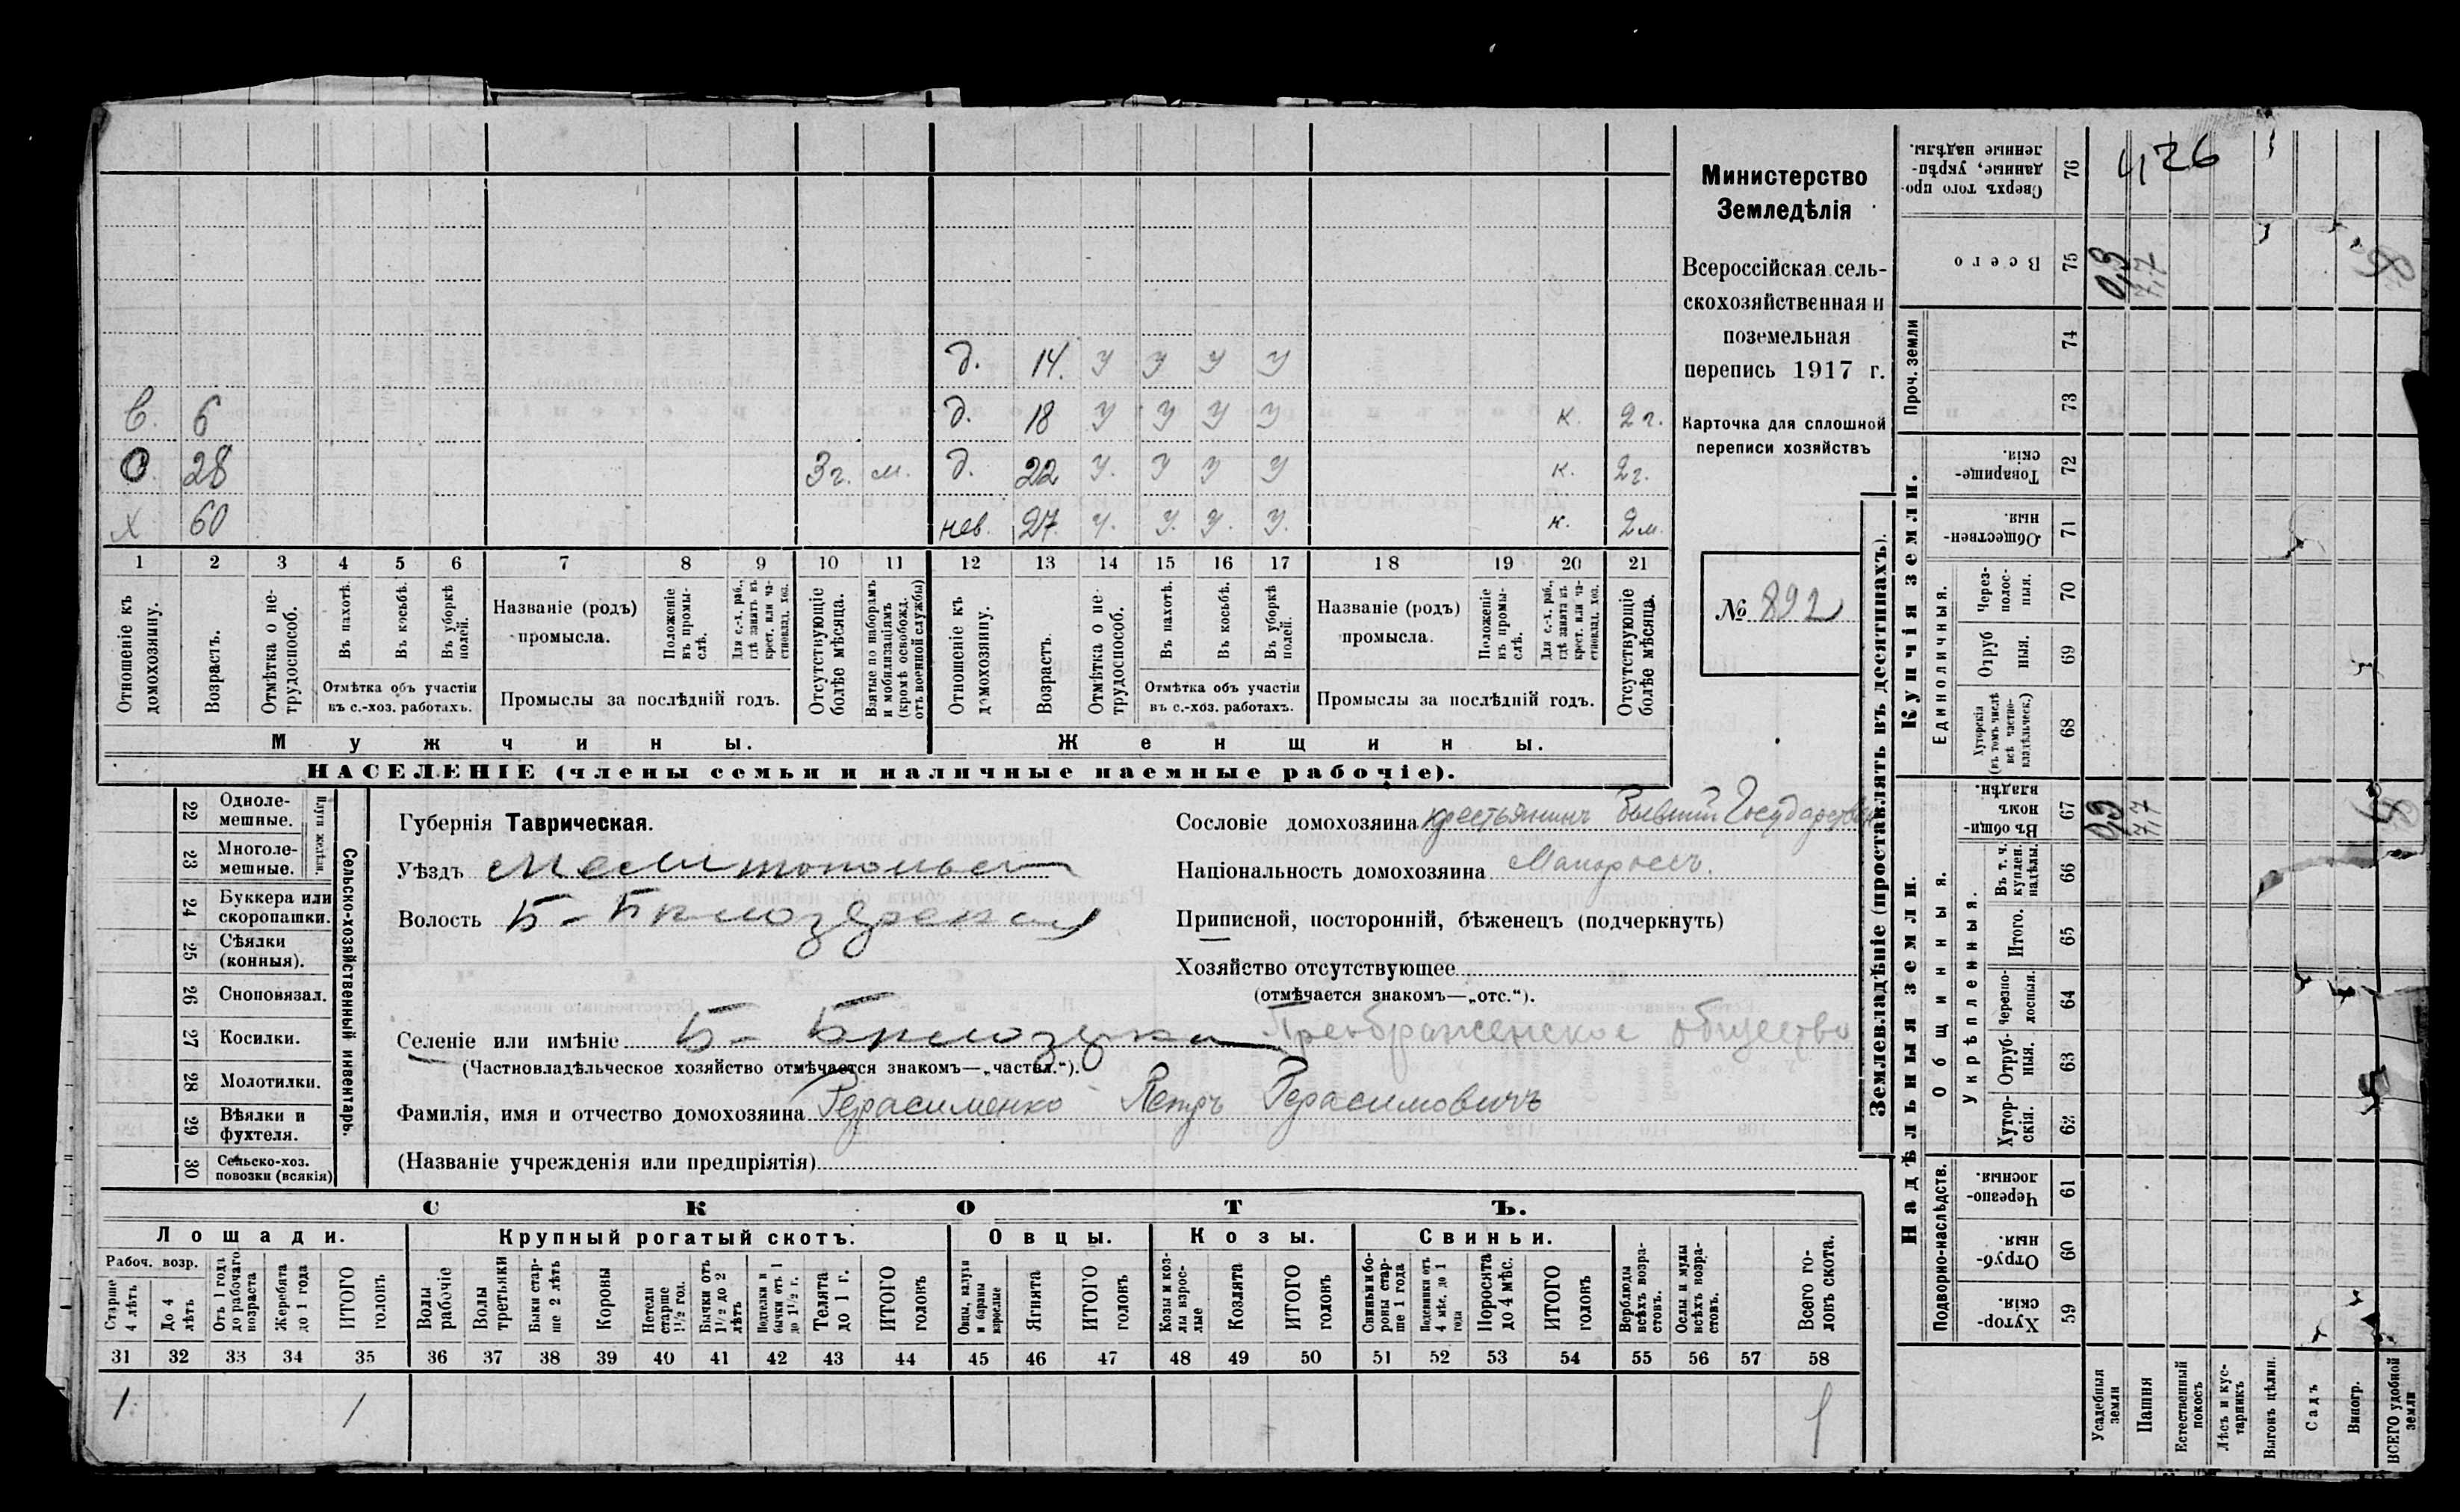 д. 14. у у у у
С. 6 д. 18 у у у у к. 2 г.
О. 28 3 г. м. д. 22 у. у у у к. 2 г.
Х 60 нев. 27. у. у. у. у. к. 2 м.
1 2 3 4 5 6 7 8 9 10 11 12 13 14 15 16 17 18 19 20 21
Отношеніе къ домохозяину.
Возрастъ.
Отмѣтка о нетрудоспособ.
Въ пахотѣ.
Въ косьбѣ.
Въ уборкѣ полей.
Отмѣтка объ участіи
въ с.-хоз. работахъ.
Названіе (родъ)
промысла.
Положеніе въ промыслѣ.
Для с.-х. раб., гдѣ занятъ въ крест. или частновлад. хоз.
Промыслы за послѣдній годъ.
Отсутствующіе болѣе мѣсяца.
Взятые по наборамъ и мобилизаціямъ (кромѣ освобожд. отъ военной службы)
Отношеніе къ домохозяину.
Возрастъ.
Отмѣтка о нетрудоспособ.
Въ пахотѣ.
Въ косьбѣ.
Въ уборкѣ полей.
Отмѣтка объ участіи
въ с.-хоз. работахъ.
Названіе (родъ)
промысла.
Положеніе въ промыслѣ.
Для с.-х. раб., гдѣ занята въ крест. или частновлад. хоз.
Промыслы за послѣдній годъ.
Отсутствующіе болѣе мѣсяца.
Мужчины. Женщины.
НАСЕЛЕНІЕ (члены семьи и наличные наемные рабочіе).
Министерство
Земледѣлія
Всероссійская сель-
скохозяйственная и
поземельная
перепись 1917 г.
Карточка для сплошной
переписи хозяйствъ
№ 892
22 Одноле-
мешные.
23 Многоле-
мешные.
Плуги желѣзн.
24 Буккера или
скоропашки.
25 Сѣялки
(конныя).
26 Сноповязал.
27 Косилки.
28 Молотилки.
29 Вѣялки и
фухтеля.
30 Сельско-хоз.
повозки (всякія)
Сельско-хозяйственный инвентарь.
Губернія Таврическая.
Уѣздъ Мелитопольск
Волость Б-Бѣлозерская
Селеніе или имѣніе Б- Бѣлозерка Преображенское общество
(Частновладѣльческое хозяйство отмѣчается знакомъ—„частвл.“).
Фамилія, имя и отчество домохозяина Герасименко Петръ Герасимовичъ
(Названіе учрежденія или предпріятія)
Сословіе домохозяина крестьянинъ бывший Государствен
Національность домохозяина Малороссъ.
Приписной, посторонній, бѣженецъ (подчеркнуть)
Хозяйство отсутствующее
(отмѣчается знакомъ—„отс.“).
СКОТЪ.
Лошади. Крупный рогатый скотъ. Овцы. Козы. Свиньи.
Рабоч. возр.
Старше 4 лѣтъ
До 4 лѣтъ
Отъ 1 года до рабочаго возраста
Жеребята до 1 года
ИТОГО головъ
Волы рабочіе
Волы третьяки
Быки старше 2 лѣтъ
Коровы
Нетели старше 1½ год.
Бычки отъ 1½ до 2 лѣтъ
Подтелки и бычки отъ 1 до 1½ г.
Телята до 1 г.
ИТОГО головъ
Овцы, валухи и бараны взрослые
Ягнята
ИТОГО головъ
Козы и козлы взрослые
Козлята
ИТОГО головъ
Свиньи и боровы старше 1 года
Подсвинки отъ 4 мѣс. до 1 года
Поросята до 4 мѣс.
ИТОГО головъ
Верблюды всѣхъ возрастовъ.
Ослы и мулы всѣхъ возрастовъ.
Всего головъ скота.
31 32 33 34 35 36 37 38 39 40 41 42 43 44 45 46 47 48 49 50 51 52 53 54 55 56 57 58
1 1 1
Землевладѣніе (проставлять въ десятинахъ).
Сверхъ того проданные, укрѣпленные надѣлы. 76 4,26
Всего 75 0,3 7,7
Проч. земли 74
73
Купчія земли.
Товарищескія. 72
Общественныя. 71
Единоличныя.
Черезполосныя. 70
Отрубныя. 69
Хуторскія (въ томъ числѣ всѣ частновладѣльческ.) 68
Надѣльныя земли.
Общинныя.
Въ общинномъ владѣн. 67 0,3 7,7
Укрѣпленныя.
Въ т. ч. куплен. надѣлы. 66
Итого. 65
Черезполосныя. 64
Отрубныя. 63
Хуторскія. 62
Подворно-наслѣдств.
Черезполосныя 61
Отрубныя. 60
Хуторскія. 59
Усадебныя земли
Пашня
Естественный покосъ
Лѣсъ и кустарникъ
Выгонъ цѣлин.
Садъ
Виногр.
ВСЕГО удобной земли